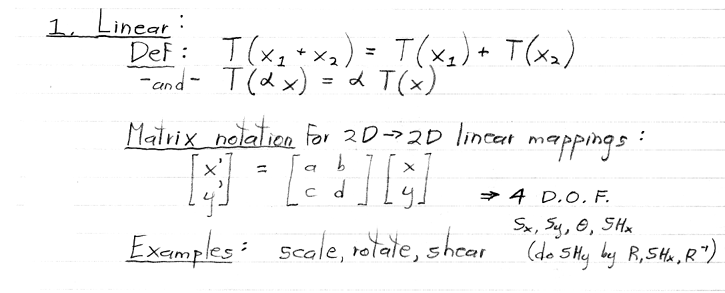 1. Linear:
Def: T(x₁ + x₂) = T(x₁) + T(x₂)
-and- T(αx) = α T(x)
Matrix notation For 2D→2D linear mappings:
[x' y'] = [a b c d] [x y] ⇒ 4 D.O.F.
Sx, Sy, θ, SHx
Examples: scale, rotate, shear (do SHy by R, SHx, R⁻¹)